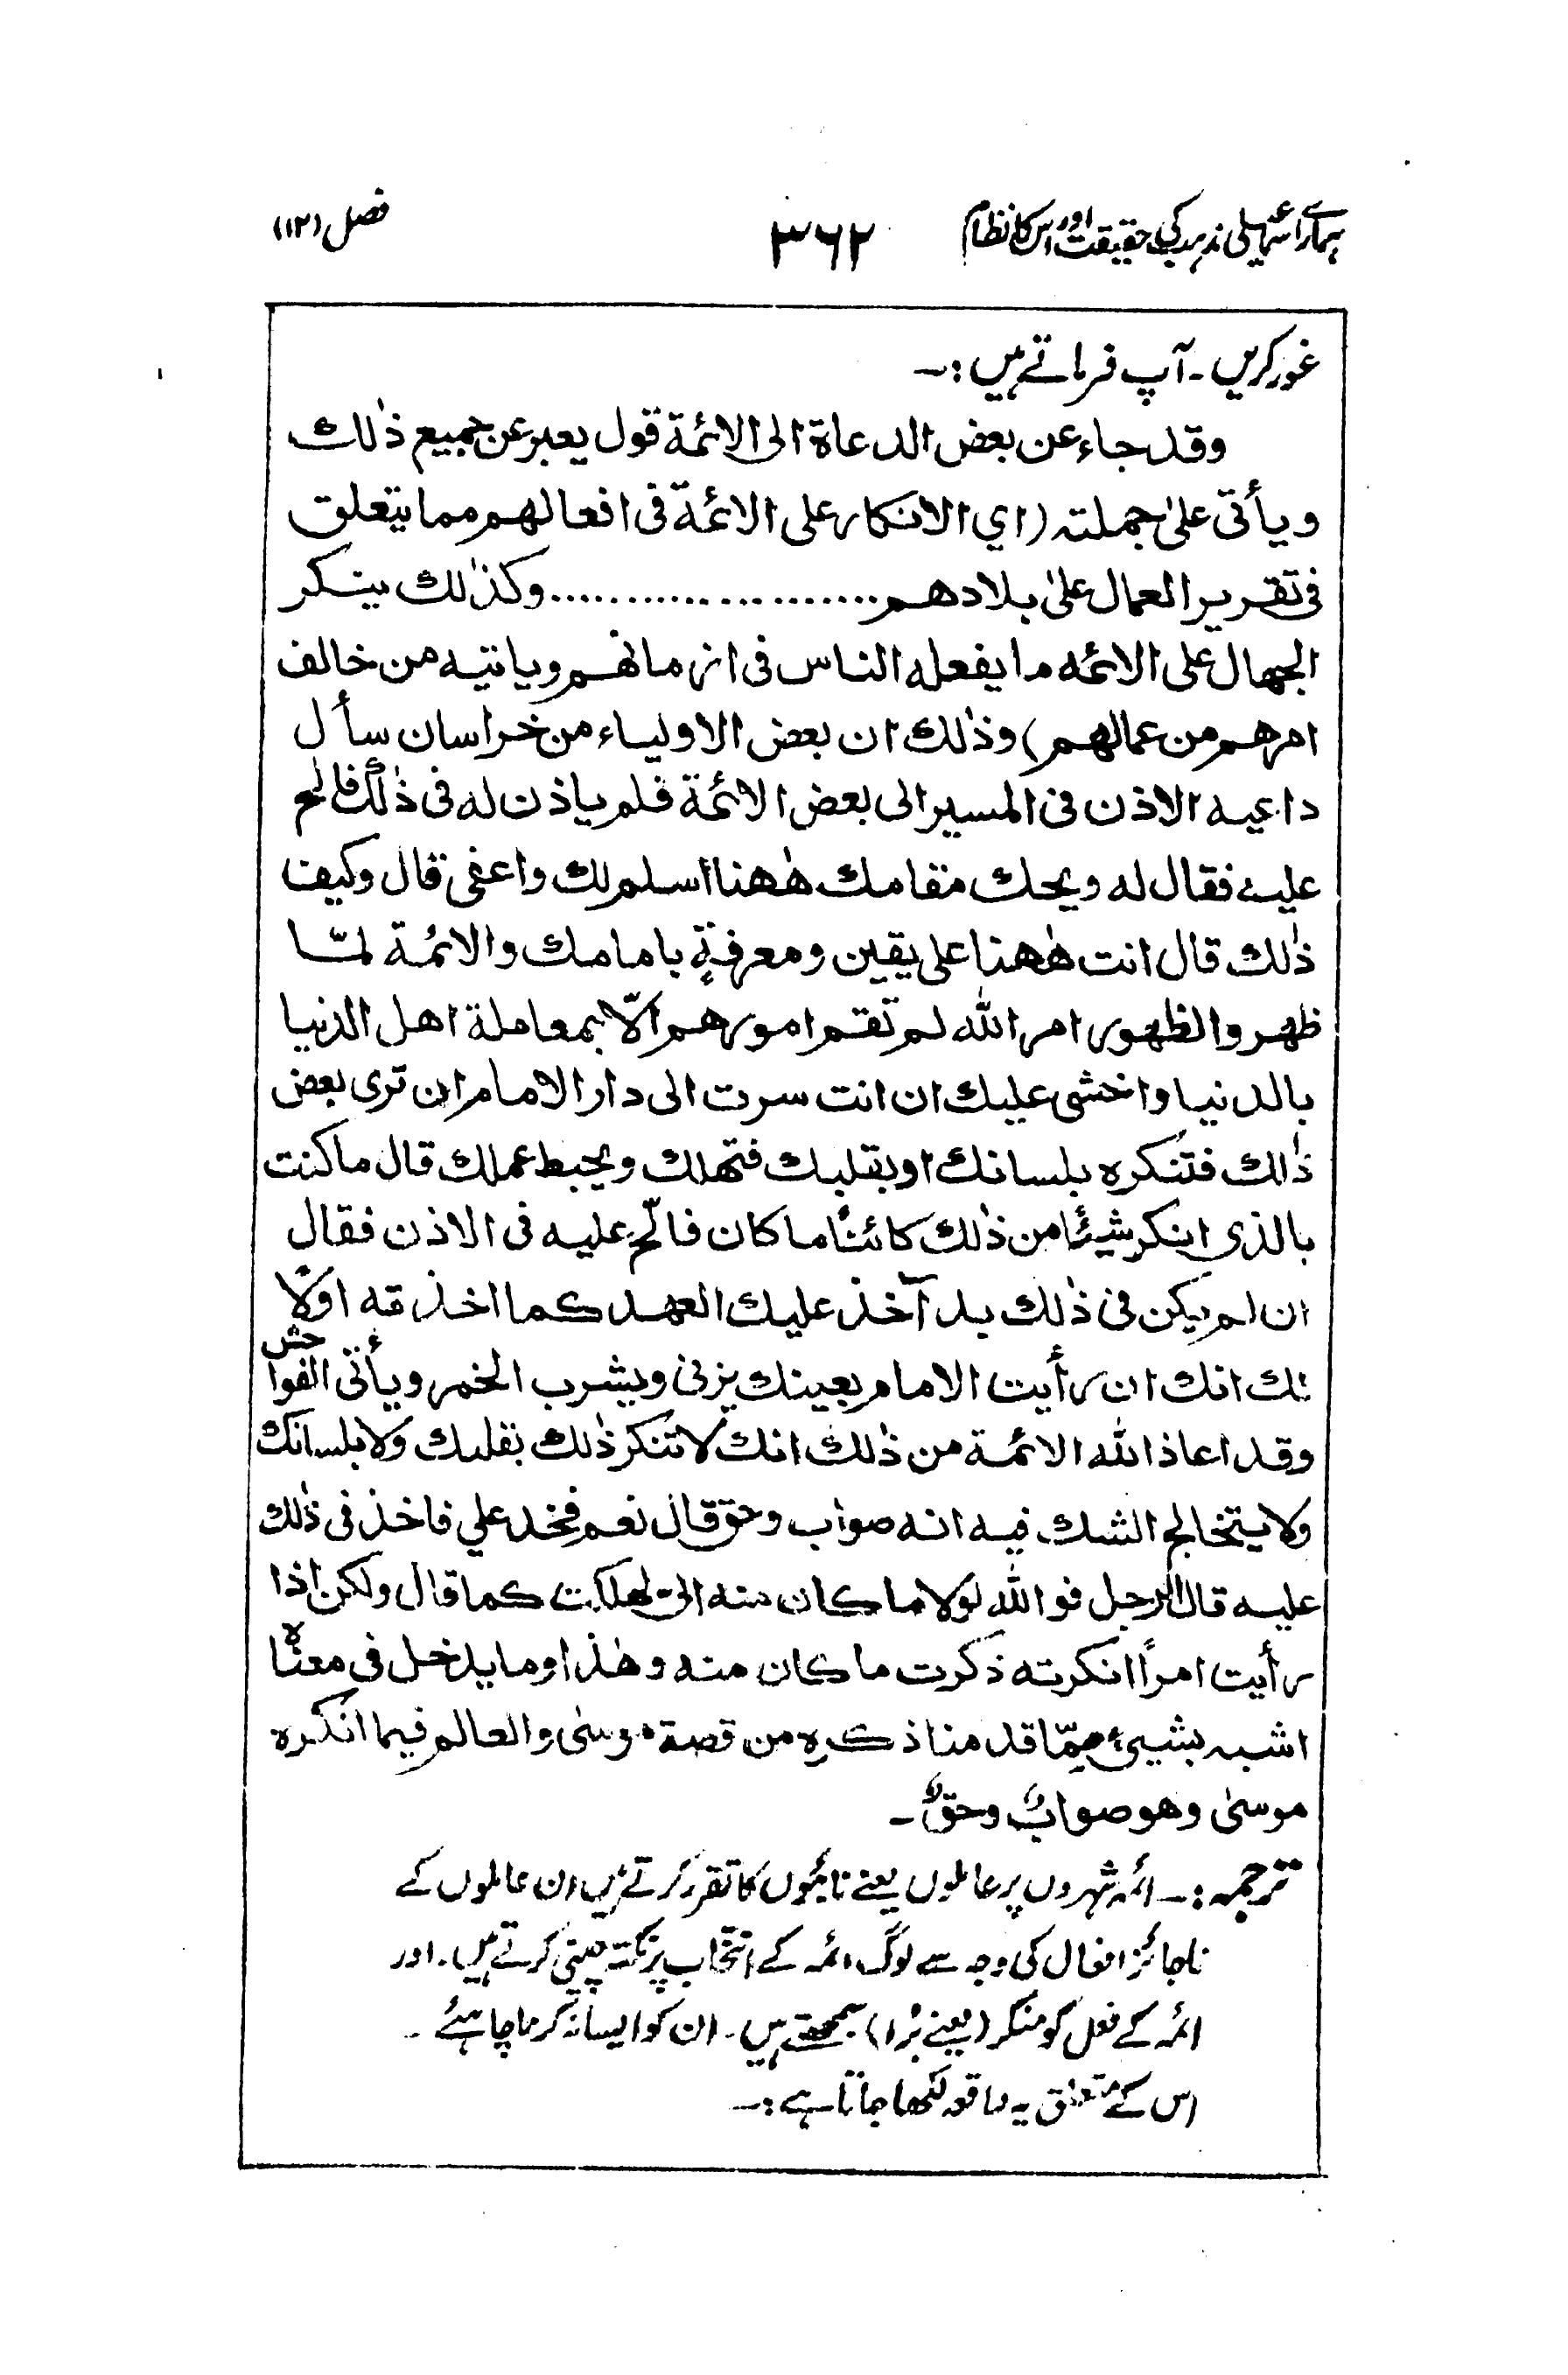 ہمارے اسمٰعیلی مذہب کی حقیقت اور اس کا نظام ۳۶۲ فصل (۱۲)
غور کریں ۔ آپ فرماتے ہیں :۔
وقد جاء عن بعض الدعاة الى الائمة قول يعبر عن جميع ذٰلك
ويأتى علىٰ جملته (اي الانكار على الائمة فى افعالهم مما يتعلق
فى تقرير العمال علىٰ بلادهم ...................... وكذٰلك ينكر
الجهال على الائمه ما يفعله الناس فى ازمانهم وياتيه من خالف
امرهم من عمالهم) وذٰلك ان بعض الاولياء من خراسان سأل
داعيه الاذن فى المسير الى بعض الائمة فلم ياذن له فى ذٰلك فالح
عليه فقال له ويحك مقامك هٰهنا اسلم لك واعفى قال وكيف
ذٰلك قال انت هٰهنا على يقين ومعرفةٍ بامامك والائمة لمّا
ظهروا لظهور امر الله لم تقم امورهم الّا بمعاملة اهل الدنيا
بالدنيا واخشى عليك ان انت سرت الى دار الامام ان ترى بعض
ذٰلك فتنكره بلسانك او بقلبك فتهلك ويحبط عملك قال ما كنت
بالذى انكر شيئًا من ذٰلك كائنًا ما كان فالّح عليه فى الاذن فقال
ان لم يكن فى ذٰلك بد آخذ عليك العهد كما اخذته اوّلًا
لك انك ان رأيت الامام بعينك يزنى ويشرب الخمر ويأتى الفواحش
وقد اعاذ الله الائمة من ذٰلك انك لا تنكر ذٰلك بقلبك ولا بلسانك
ولا يتخالج الشك فيه انه صواب وحق قال نعم فخذ علي فاخذ فى ذٰلك
عليه قال الرجل فو الله لولا ما كان منه الىّ لهلكت كما قال ولكن اذا
رأيت امرًا انكرته ذكرت ما كان منه وهٰذا وما يدخل فى معناه
اشبه بشيئ ممّا قدمنا ذكره من قصة موسىٰ والعالم فيما انكره
موسىٰ وهو صوابٌ وحقٌ ۔
ترجمہ :۔ ائمہ شہروں پر عاملوں یعنے نائبوں کا تقرر کرتے ہیں ان عاملوں کے
ناجائز افعال کی وجہ سے لوگ ائمہ کے انتخاب پر نکتہ چینی کرتے ہیں ۔ اور
ائمہ کے فعل کو منکر (یعنے بُرا) سمجھتے ہیں ۔ ان کو ایسا نہ کرنا چاہئے ۔
اس کے متعلق یہ واقعہ لکھا جاتا ہے :۔